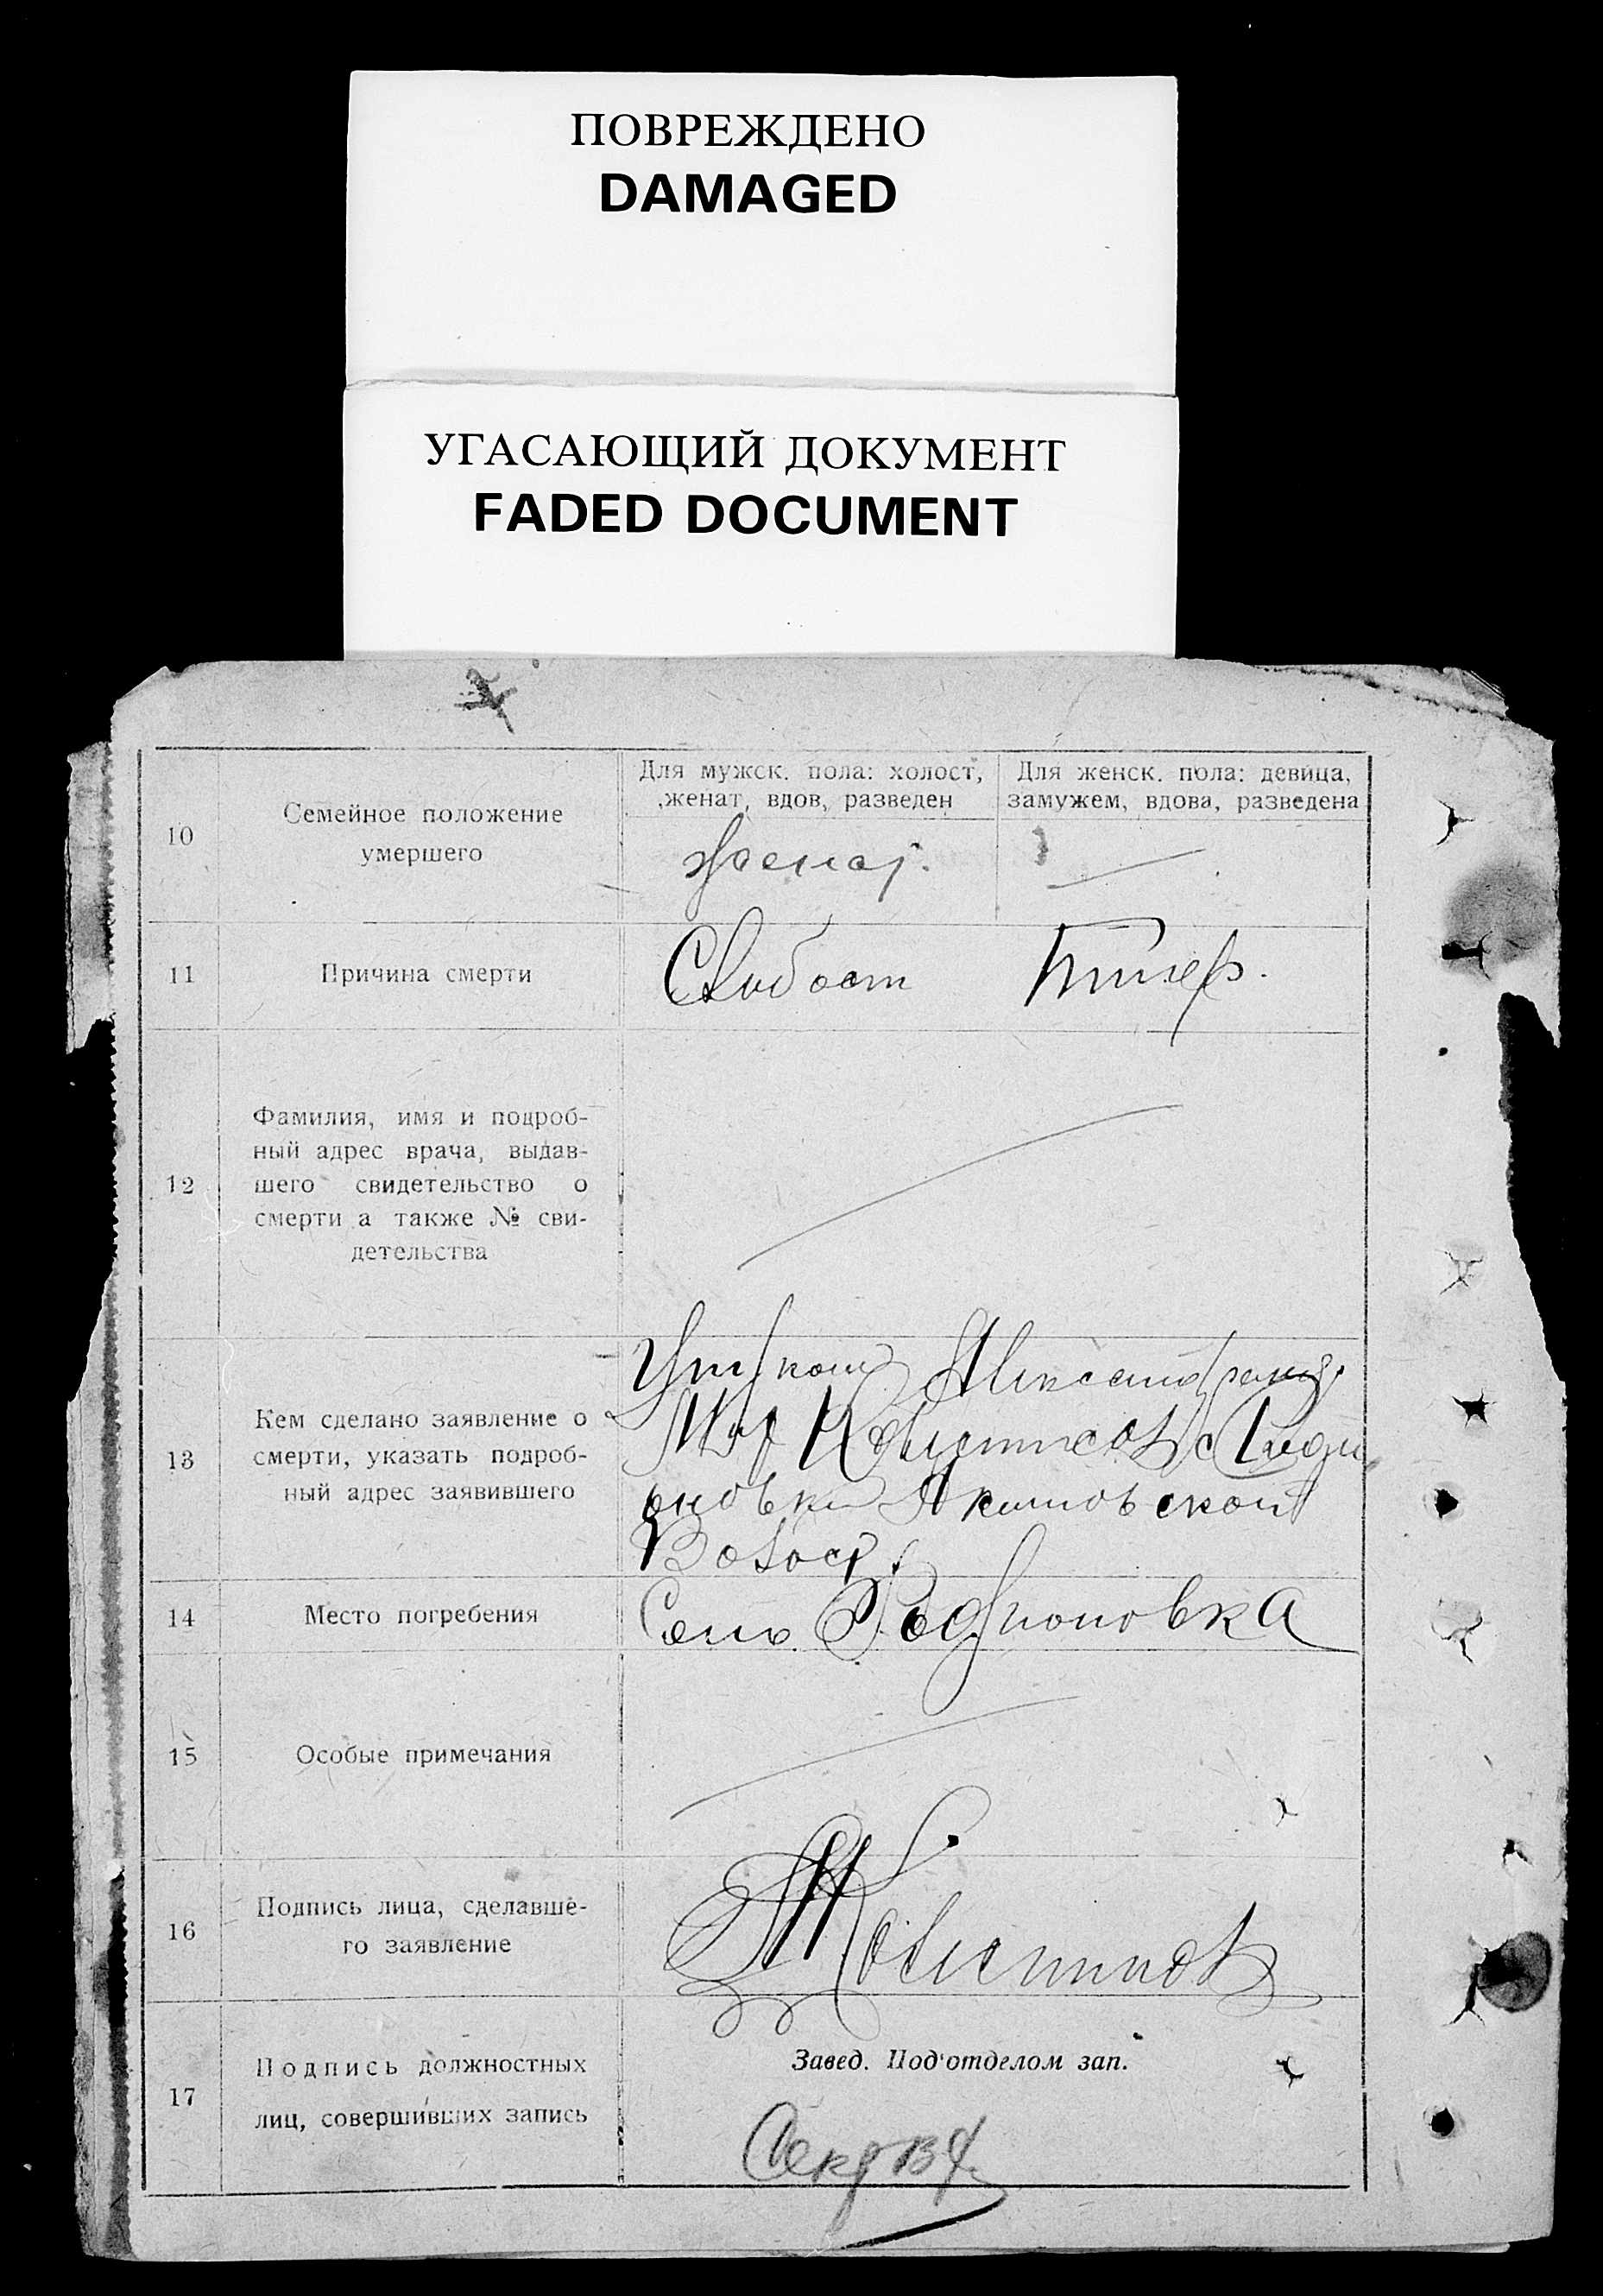 ПОВРЕЖДЕНО
DAMAGED
УГАСАЮЩИЙ ДОКУМЕНТ
FADED DOCUMENT
10
Семейное положение
умершего
Для мужск. пола: холост,
женат, вдов, разведен
Для женск. пола: девица,
замужем, вдова, разведена
женат.
11
Причина смерти
12
Фамилия, имя и подроб-
ный адрес врача, выдав-
шего свидетельство о
смерти а также № сви-
детельства
13
Кем сделано заявление о
смерти, указать подроб-
ный адрес заявившего
с Роди
оновки Акимовской
Волост.
14
Место погребения
Село Родионовка
15
Особые примечания
16
Подпись лица, сделавше-
го заявление
17
Подпись должностных
лиц, совершивших запись
Завед. Под'отделом зап.